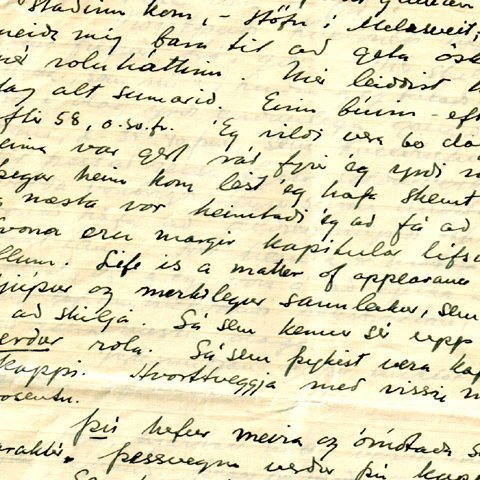 staðinn kom, - Stöfn í Melasveit,
neiða mig fara til að geta
rolu háttinn. Mér leiddist
dag alt sumarið. Einn búinn - eft
eftir 58, o.so.fr. Ég vildi vera bo da
heima var gert ráð fyri ég yrði
Þegar heim kom lést ég hafa skemt
næsta vor heimtaði ég að fá að
Svona eru margir kapitular lífs
öllum. Life is a matter of appearance
djúpur og merkilegur sannleikur, sem
að skilja. Sá sem kemur sér upp
verður rola. Sá sem þykist vera kap
kappi. Hvorttveggja með vissu
prosentu.
Þú hefur meira og ómótað
karaktér, þessvegna verður þú kapp